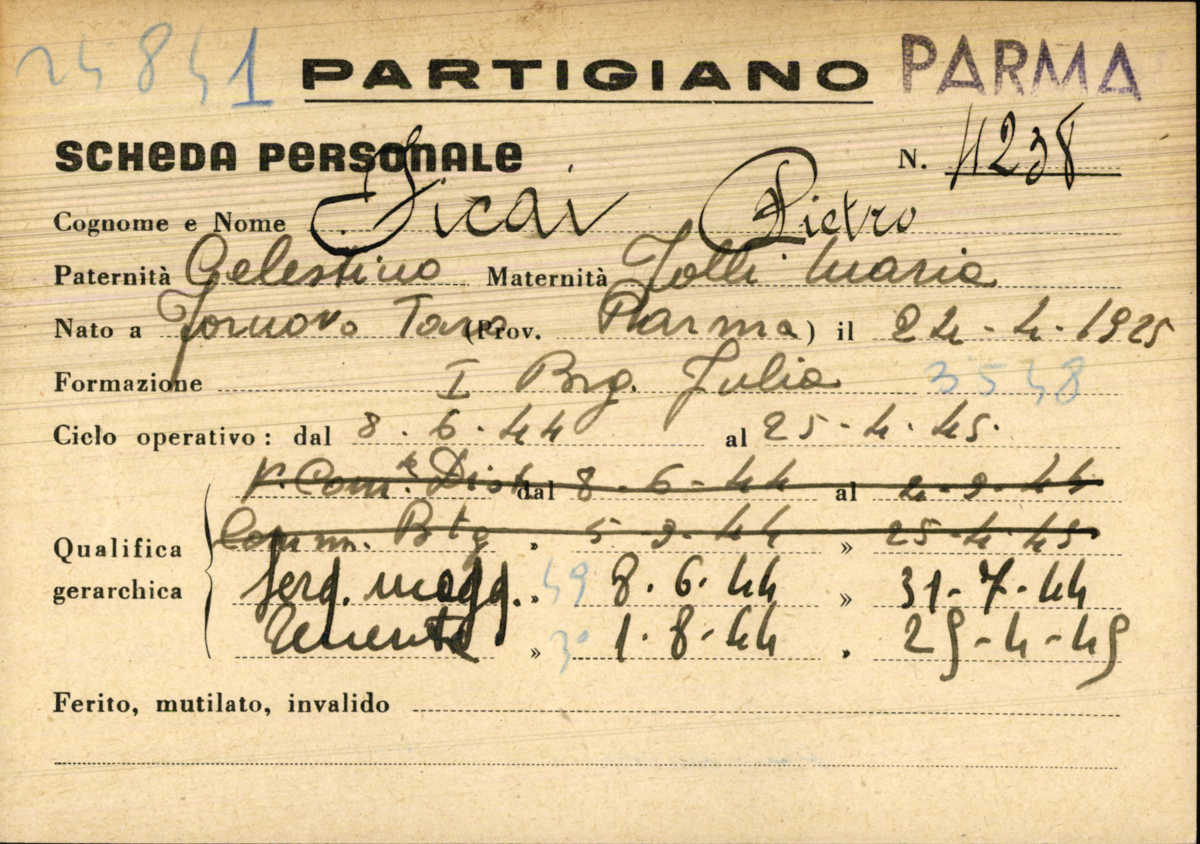 24841 PARTIGIANO PARMA
SCHEDA PERSONALE N. 4238
Cognome e Nome Sicai Pietro
Paternità Celestino Maternità Tolli Maria
Nato a Fornovo Taro (Prov. Parma) il 24-4-1925
Formazione I Brg. Julia 3548
Ciclo operativo: dal 8.6.44 al 25-4-45.
V. Com.te Dist. dal 8-6-44 al 4-9-44
Qualifica gerarchica Comm. Btg » 5-9-44 » 25-4-45
Serg. magg. » 49 8.6.44 » 31-7-44
Tenente » 3° 1.8-44 » 25-4-45
Ferito, mutilato, invalido